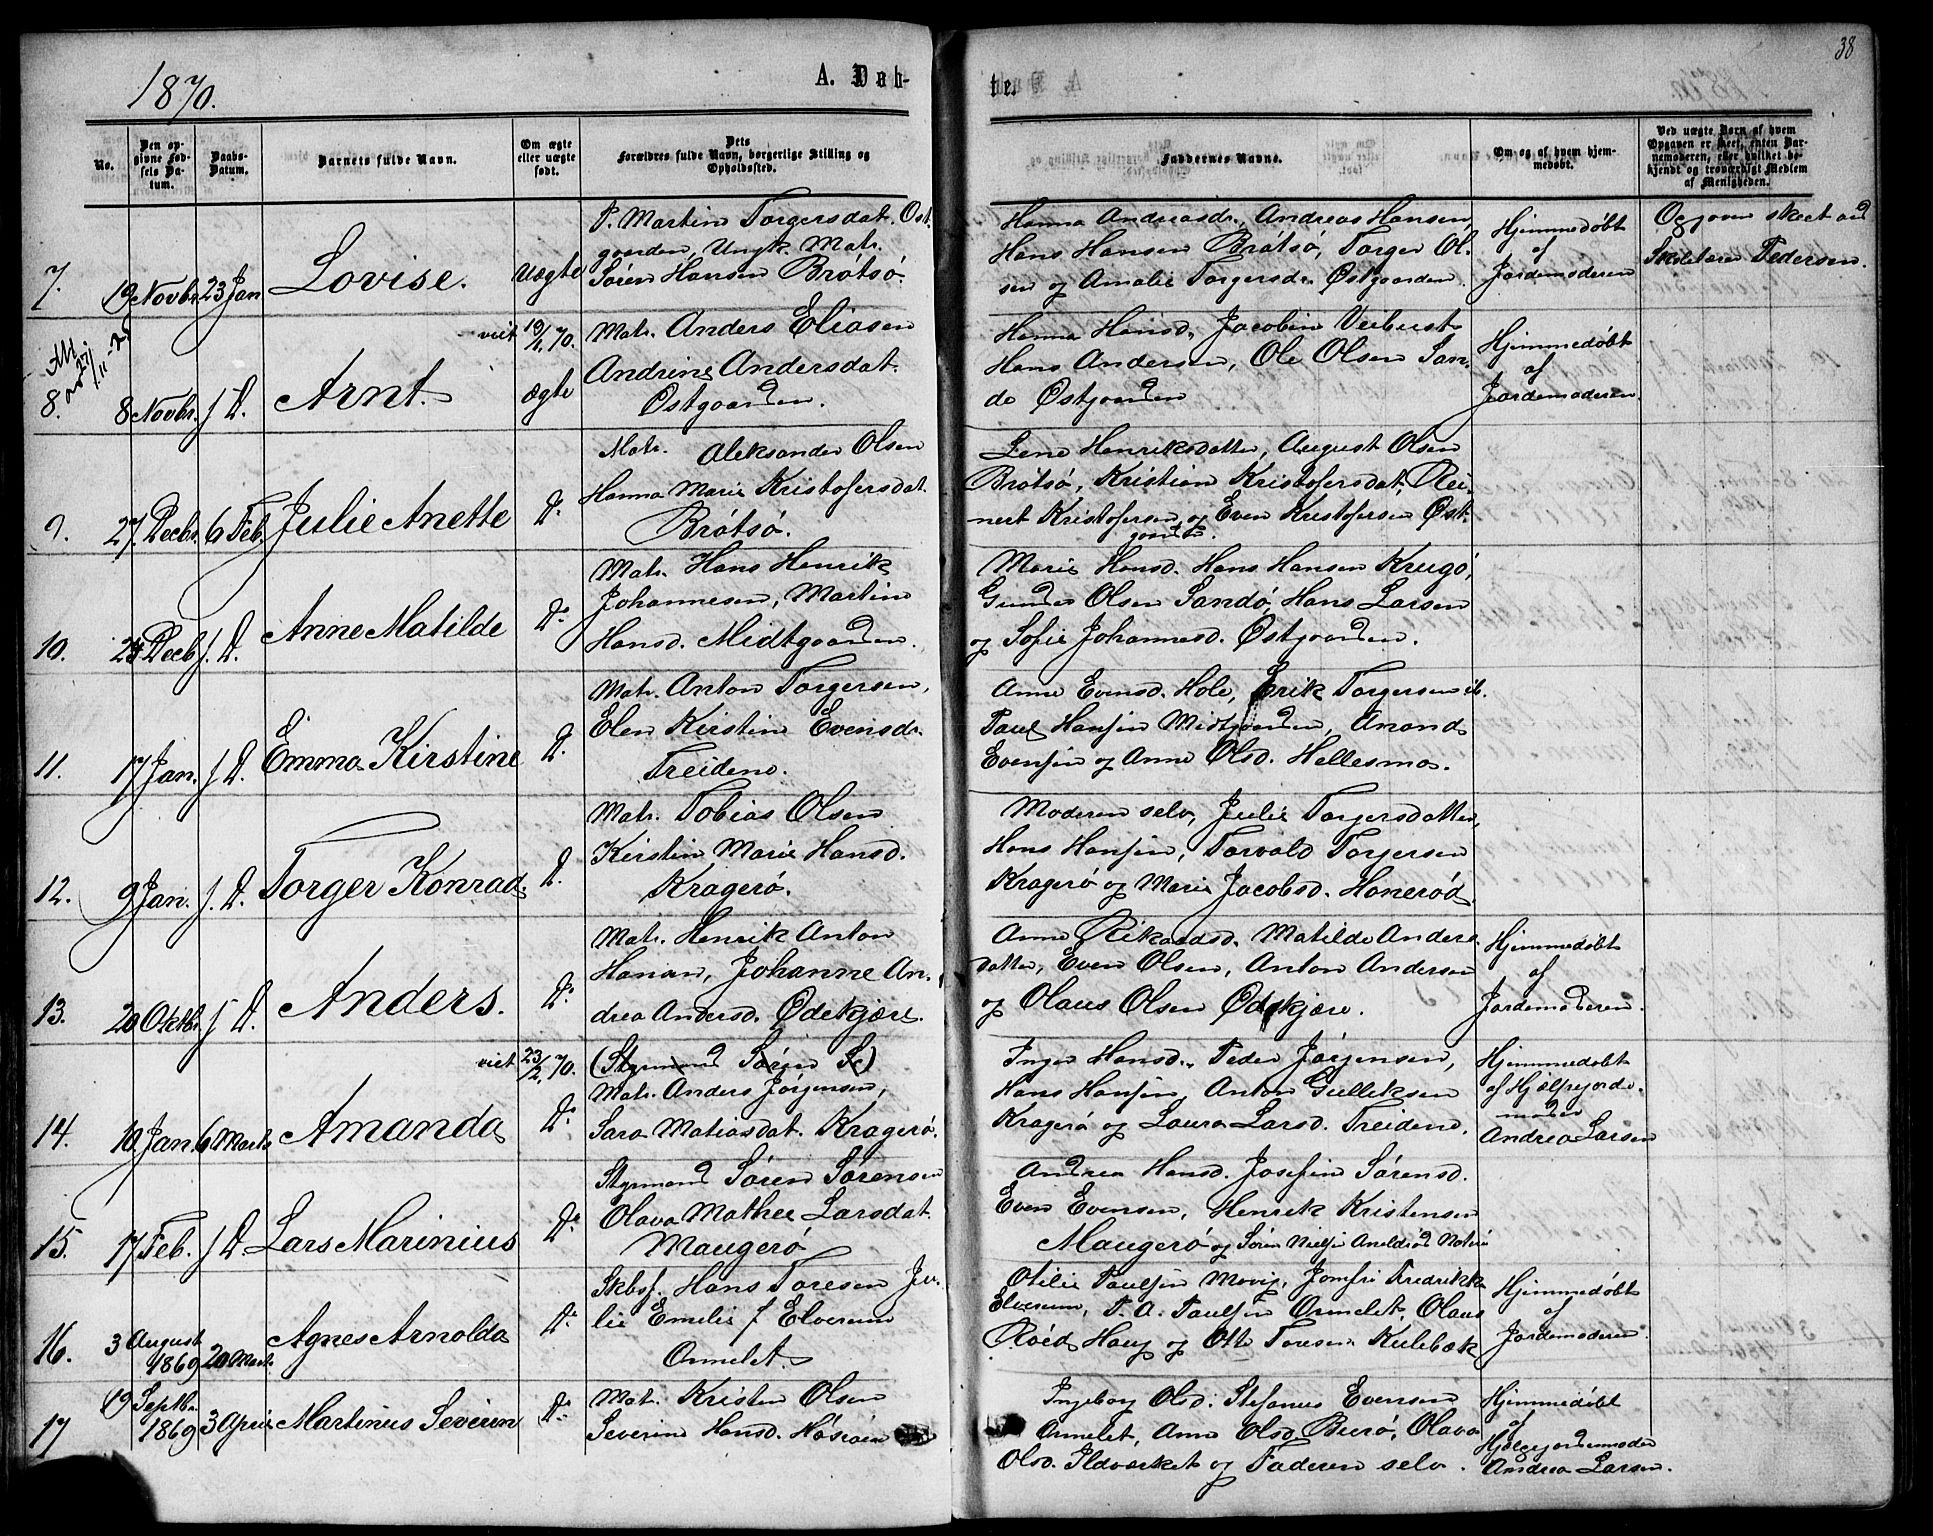 38
1870.
A. Døb-
te.
No.
Den op-
givne Fød-
sels Da-
tum.
Daabs-
Datum.
Barnets fulde Navn.
Om ægte
eller uægte
født.
Dets
Forældres fulde Navn, borgerlige Stilling og
Opholdssted.
Faddernes Navne.
Om og af hvem hjem-
medøbt.
Ved uægte Børn af hvem
Opgaven er skeet, enten Bar-
nemoderen, eller hvilket be-
kjendt og troværdigt Medlem
af Menigheden.
7.
19 Novbr.
23 Jan
Lovise.
Uægte
P. Martine Torgersdat. Øst-
gaarden, Ungk. Matr.
Søren Hansen Brøtsø.
Hanna Andreasdr., Andreas Hansen,
Hans Hansen Brøtsø, Torger Ol-
sen og Amalie Torgersdr. Østgaarden.
Hjemmedøbt
af
Jordemoderen
Opgaven skeet ved
Skolelærer Pedersen.
8.
8 Novbr.
s. D.
Arnt.
viet 19/1 70.
ægte
Matr. Anders Eliasen
Andrine Andersdat.
Østgaarden.
Hanna Hansd., Jacobine
Hans Andersen, Ole Olsen San-
de Østgaarden
Hjemmedøbt
af
Jordemoderen.
9.
27. Decbr.
6 Feb.
Julie Anette
Do.
Matr. Aleksander Olsen
Hanna Marie Kristofersdat.
Brøtsø.
Lene Henriksdatter, August Olsen
Brøtsø, Kristian Kristofersdat, Rei-
nert Kristofersen og Even Kristofersen Øst-
gaarden.
10.
24 Decb.
s. D.
Anne Matilde
Do.
Matr. Hans Henrik
Johannesen, Martine
Hansd. Midtgaarden.
Marie Hansd. Hans Hansen Kragø,
Gunder Olsen Sandø, Hans Larsen
og Sofie Johannesd. Østgaarden.
11.
17 Jan.
s. D.
Emma Kirstine
D.
Matr. Anton Torgersen,
Elen Kirstine Evensdr.
Treidene.
Anne Evensd. Hole, Erik Torgersen ib.
Paul Hansen Midtgaarden, Anand
Evensen og Anne Olsd. Hellesmo.
12.
9 Jan.
s. D.
Torger Konrad.
D.
Matr. Tobias Olsen
Kirstine Marie Hansd.
Kragerø.
Moderen selv, Julie Torgersdatter,
Hans Hansen, Torvald Torgersen
Kragerø og Marie Jacobsd. Honerød.
13.
20 Oktbr.
s. D.
Anders.
Do.
Matr. Henrik Anton
Hansen, Johanne An-
drea Andersd. Ødekjære.
Anne Rikardsd. Matilde Anders-
datter, Even Olsen, Anton Andersen
og Olaus Olsen Ødekjære.
Hjemmedøbt
af
Jordemoderen.
14.
10. Jan.
6 Marts
Amanda
viet 23/2 70.
Do.
(Styrmand Søren S)
Matr. Anders Jørgensen,
Sara Matiasdat. Kragerø.
Inger Hansd., Peder Jørgensen,
Hans Hansen, Anton Gulliksen
Kragerø og Laura Larsd. Treidene.
Hjemmedøbt
af Hjælpejorde-
moder
Andrea Larsen
15.
17 Feb.
s. D.
Lars Marinius
Do.
Styrmand Søren Sørensen
Olava Mathea Larsdat.
Maugerø
Andrea Hansd. Josefine Sørensd.
Even Evensen, Henrik Kristensen
Maugerø og Søren Nielsen
16.
3 August
1869
20 Marts
Agnes Arnolda
Do.
Skbsf. Hans Toresen Ju-
lie Emelie f Elversum
Ormelet
Otilie Paulsen Movig, Jomfru Fredrikke
Elversum, P. A. Paulsen Ormelet, Olaus
Røed Haug og Otto Toresen Kulebæk
Hjemmedøbt
af
Jordemoderen
17
19 Septbr.
1869
3 April
Martinus Severin
Do.
Matr. Kristen Olsen
Severine Hansd.
Ingeborg Olsd. Stefanus Evensen
Ormelet, Anne Olsd Buerø, Olava
Olsd. Ildverket og Faderen selv.
Hjemmedøbt
af
Hjælpejordemoder
Andrea Larsen.